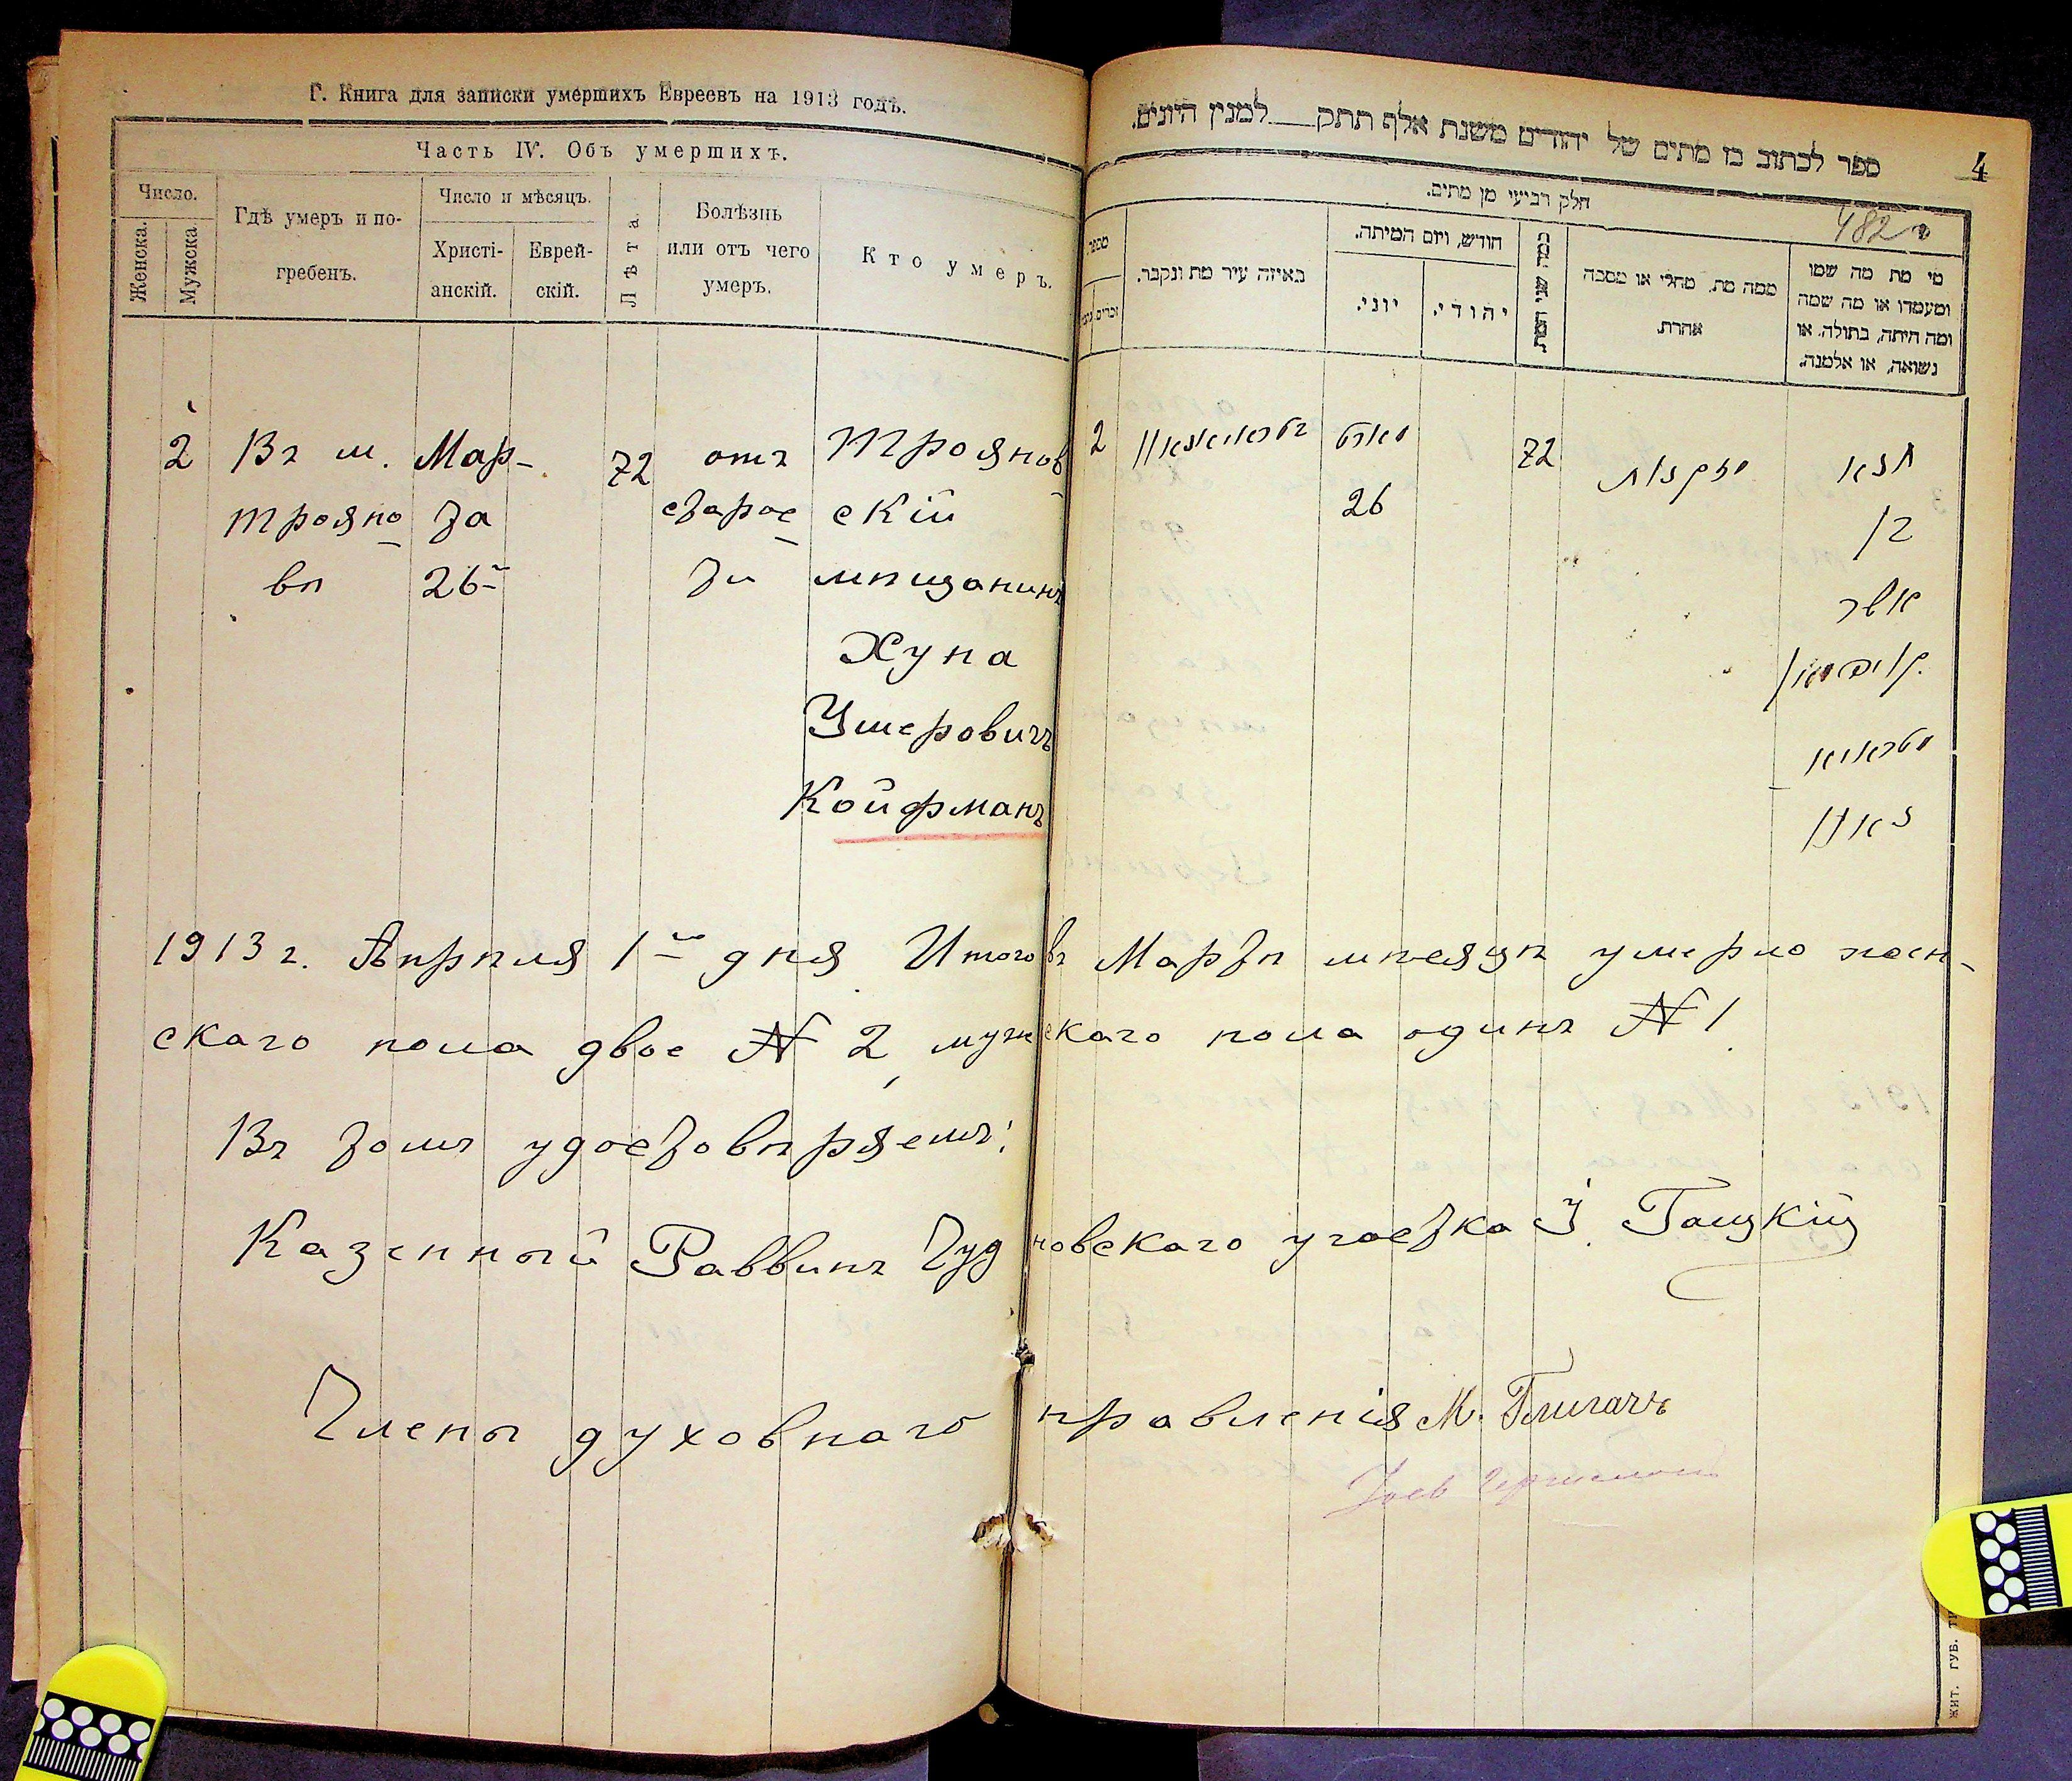 Г. Книга для записки умершихъ Евреевъ на 1913 годъ.
Часть IV. Объ умершихъ.
Число.
Женска.
Мужска
Гдѣ умеръ и по-
гребенъ.
Число и мѣсяцъ.
Христі-
анскій.
Еврей-
скій.
Лѣта
Болѣзнь
или отъ чего
умеръ.
Кто умеръ.
2 Въ м. Мар- 72 отъ Трояновъ
трояно та старос скій
вѣ 26го ти мѣщанинъ
Хуна
Ушеровичъ
Койфманъ
ספר לכתוב בו מתים של יהודים משנת אלף תתק___למנין היונים.
4
482
חלק רביעי מן מתים.
מספר
זכרים
באיזה עיר מת ונקבר.
חודש, ויום המיתה.
יוני.
יהודי.
כמה שני המת
ממה מת, מחלי או מסבה
אחרת.
מי מת מה שמו
ומעמדו או מה שמה
ומה היתה, בתולה, או
נשואה, או אלמנה.
2 מארט 72
26
בן
אשר
קויפמאן
1913 г. Апрѣля 1го дня Итого въ Мартѣ мѣсяцѣ умерло жен-
скаго пола двое № 2, мужскаго пола одинъ № 1.
Въ томъ удостовѣряемъ:
Казенный Раввинъ Чудновскаго участка І. Галицкій
Члены духовнаго правленія М. Глигачъ
ЖИТ. ГУБ. ТИ